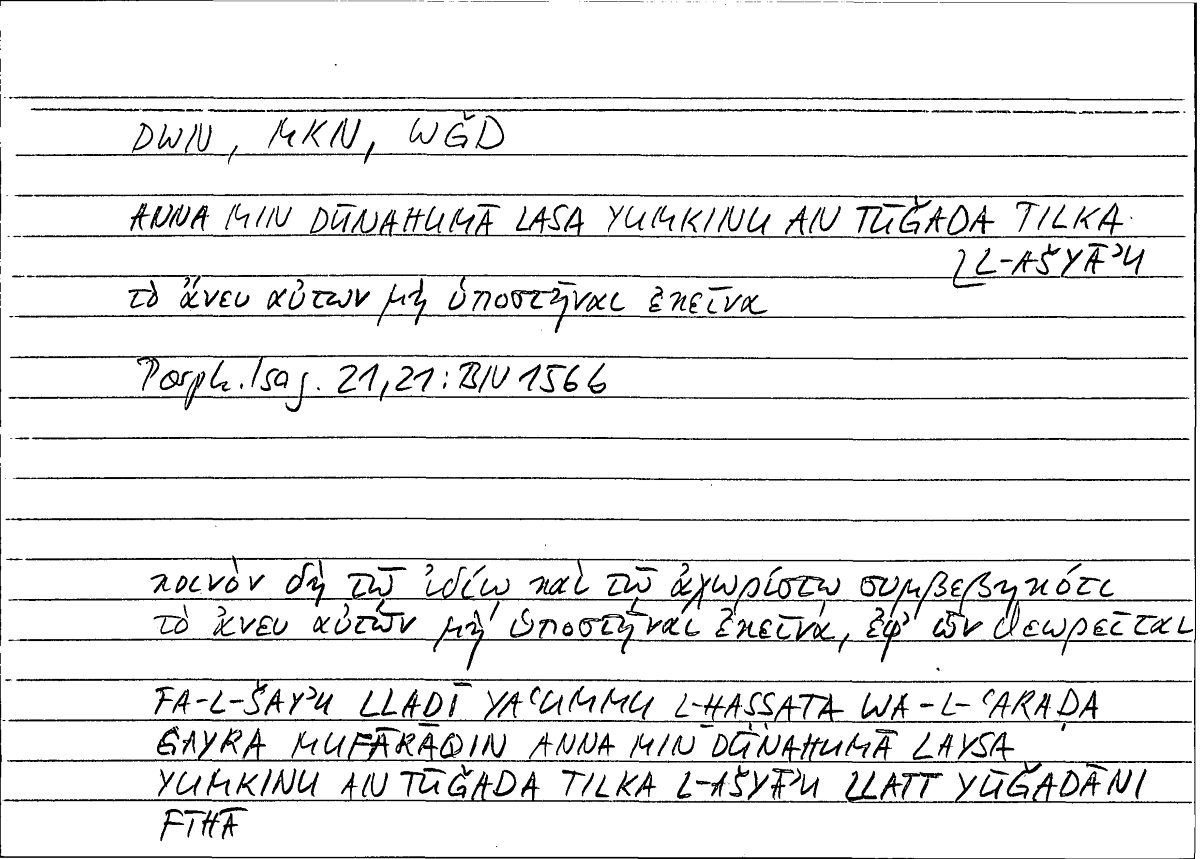 DWN, MKN, WǦD
ANNA MIN DŪNAHUMĀ LASA YUMKINU AN TŪǦADA TILKA
L-AŠYĀʾU
τὸ ἄνευ αὐτων μὴ ὑποστῆναι ἐκεῖνα
Porph. Isag. 21,21: BN 1566
κοινὸν δὴ τῷ ἰδίῳ καὶ τῷ ἀχωρίστῳ συμβεβηκότι
τὸ ἄνευ αὐτῶν μὴ ὑποστῆναι ἐκεῖνα, ἐφ' ὧν θεωρεῖται
FA-L-ŠAYʾU LLADĪ YAʿUMMU L-HASSATA WA-L-ʿARAḌA
ĠAYRA MUFĀRĀQIN ANNA MIN DŪNAHUMĀ LAYSA
YUMKINU AN TŪǦADA TILKA L-AŠYĀʾU LLATĪ YŪǦADĀNI
FĪHĀ